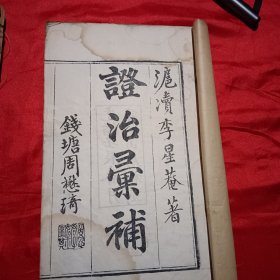 滬瀆李星菴著
證治彙補
錢塘周懋琦